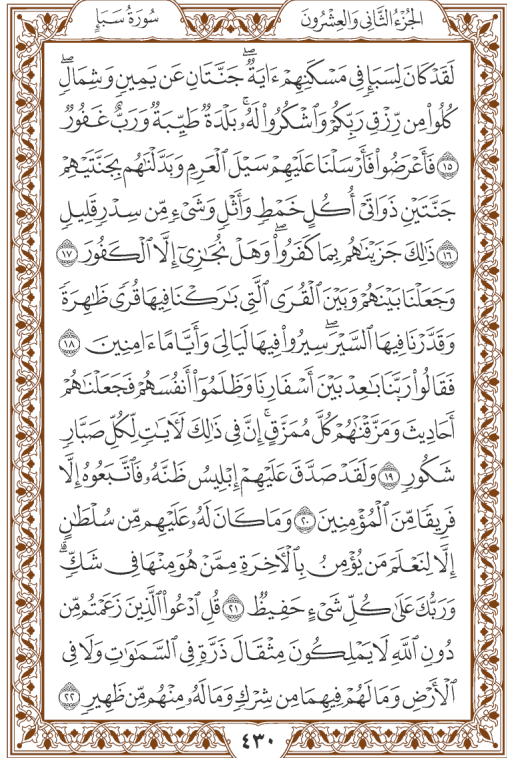 الجُزْءُ الثَّانِي وَالعِشْرُونَ
سُورَةُ سَبَإٍ
لَقَدْ كَانَ لِسَبَإٍ فِي مَسْكَنِهِمْ ءَايَةٌۖ جَنَّتَانِ عَن يَمِينٍ وَشِمَالٍۖ
كُلُوا۟ مِن رِّزْقِ رَبِّكُمْ وَٱشْكُرُوا۟ لَهُۥۚ بَلْدَةٌ طَيِّبَةٌ وَرَبٌّ غَفُورٌ
١٥ فَأَعْرَضُوا۟ فَأَرْسَلْنَا عَلَيْهِمْ سَيْلَ ٱلْعَرِمِ وَبَدَّلْنَٰهُم بِجَنَّتَيْهِمْ
جَنَّتَيْنِ ذَوَاتَىْ أُكُلٍ خَمْطٍ وَأَثْلٍ وَشَىْءٍ مِّن سِدْرٍ قَلِيلٍ
١٦ ذَٰلِكَ جَزَيْنَٰهُم بِمَا كَفَرُوا۟ۖ وَهَلْ نُجَٰزِىٓ إِلَّا ٱلْكَفُورَ ١٧
وَجَعَلْنَا بَيْنَهُمْ وَبَيْنَ ٱلْقُرَى ٱلَّتِى بَٰرَكْنَا فِيهَا قُرًى ظَٰهِرَةً
وَقَدَّرْنَا فِيهَا ٱلسَّيْرَۖ سِيرُوا۟ فِيهَا لَيَالِىَ وَأَيَّامًا ءَامِنِينَ ١٨
فَقَالُوا۟ رَبَّنَا بَٰعِدْ بَيْنَ أَسْفَارِنَا وَظَلَمُوٓا۟ أَنفُسَهُمْ فَجَعَلْنَٰهُمْ
أَحَادِيثَ وَمَزَّقْنَٰهُمْ كُلَّ مُمَزَّقٍۚ إِنَّ فِى ذَٰلِكَ لَـَٔايَٰتٍ لِّكُلِّ صَبَّارٍ
شَكُورٍ ١٩ وَلَقَدْ صَدَّقَ عَلَيْهِمْ إِبْلِيسُ ظَنَّهُۥ فَٱتَّبَعُوهُ إِلَّا
فَرِيقًا مِّنَ ٱلْمُؤْمِنِينَ ٢٠ وَمَا كَانَ لَهُۥ عَلَيْهِم مِّن سُلْطَٰنٍ
إِلَّا لِنَعْلَمَ مَن يُؤْمِنُ بِٱلْـَٔاخِرَةِ مِمَّنْ هُوَ مِنْهَا فِى شَكٍّۗ
وَرَبُّكَ عَلَىٰ كُلِّ شَىْءٍ حَفِيظٌ ٢١ قُلِ ٱدْعُوا۟ ٱلَّذِينَ زَعَمْتُم مِّن
دُونِ ٱللَّهِ لَا يَمْلِكُونَ مِثْقَالَ ذَرَّةٍ فِى ٱلسَّمَٰوَٰتِ وَلَا فِى
ٱلْأَرْضِ وَمَا لَهُمْ فِيهِمَا مِن شِرْكٍ وَمَا لَهُۥ مِنْهُم مِّن ظَهِيرٍ ٢٢
٤٣٠